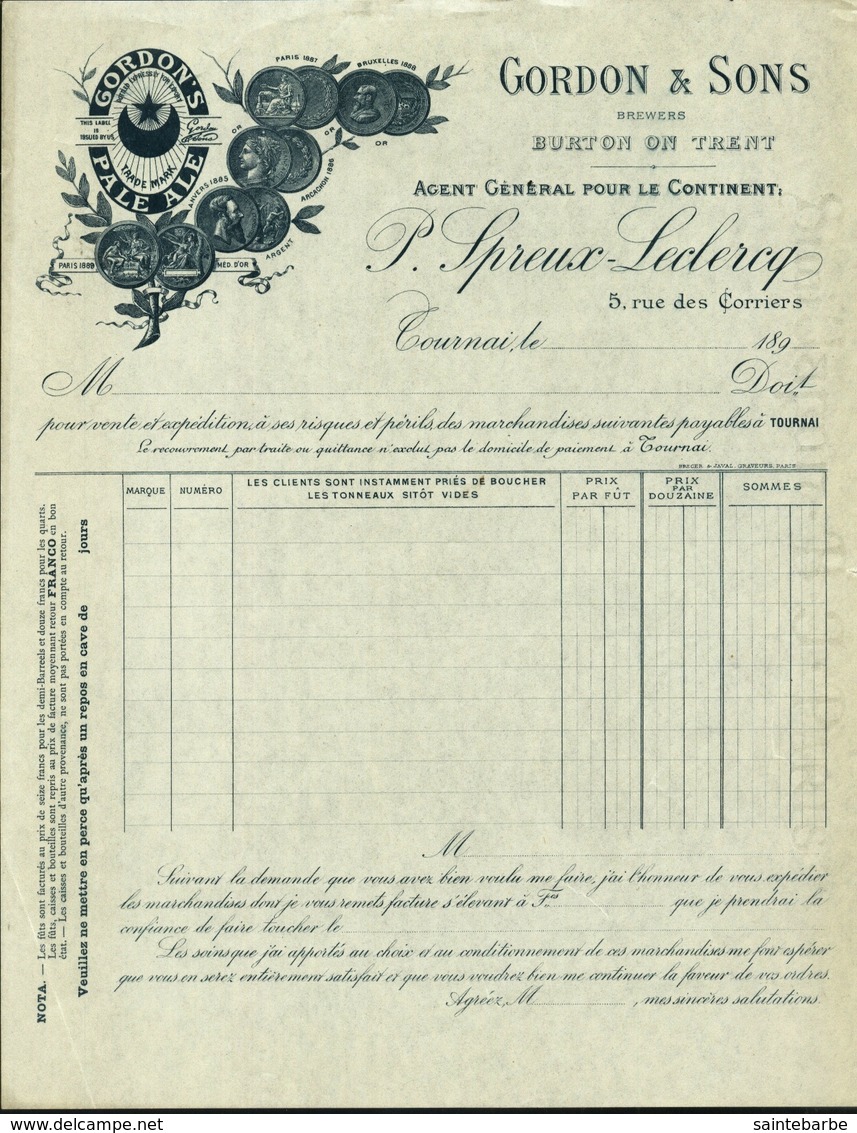 GORDON'S
BREWED EXPRESSLY FOR EXPORT
THIS LABEL
IS
ISSUED BY US
Gordon
& Sons
TRADE MARK
PALE ALE
PARIS 1887
BRUXELLES 1888
OR
OR
OR
ANVERS 1885
ARCACHON 1886
ARGENT
PARIS 1889
MÉD. D'OR
GORDON & SONS
BREWERS
BURTON ON TRENT
AGENT GÉNÉRAL POUR LE CONTINENT:
P. Spreux-Leclercq
5, rue des Corriers
Tournai, le 189
M Doit
pour vente et expédition, à ses risques et périls, des marchandises suivantes payables à TOURNAI
Le recouvrement par traite ou quittance n'exclut pas le domicile de paiement à Tournai.
BREGER & JAVAL, GRAVEURS, PARIS
MARQUE
NUMÉRO
LES CLIENTS SONT INSTAMMENT PRIÉS DE BOUCHER
LES TONNEAUX SITÔT VIDES
PRIX
PAR FÛT
PRIX
PAR
DOUZAINE
SOMMES
NOTA. — Les fûts sont facturés au prix de seize francs pour les demi-Barreels et douze francs pour les quarts.
Les fûts, caisses et bouteilles sont repris au prix de facture moyennant retour FRANCO en bon
état. — Les caisses et bouteilles d'autre provenance, ne sont pas portées en compte au retour.
Veuillez ne mettre en perce qu'après un repos en cave de jours
M
Suivant la demande que vous avez bien voulu me faire, j'ai l'honneur de vous expédier
les marchandises dont je vous remets facture s'élevant à Fcs que je prendrai la
confiance de faire toucher le
Les soins que j'ai apportés au choix et au conditionnement de ces marchandises me font espérer
que vous en serez entièrement satisfait et que vous voudrez bien me continuer la faveur de vos ordres.
Agréez, M , mes sincères salutations.
saintebarbe